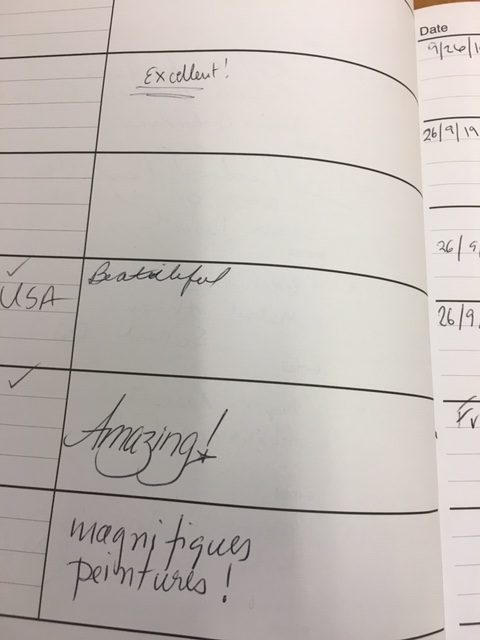 Excellent!
USA
Beatiful
Amazing!
magnifiques
peintures!
Date
9/26/1
26/9/19
26/9/
26/9/